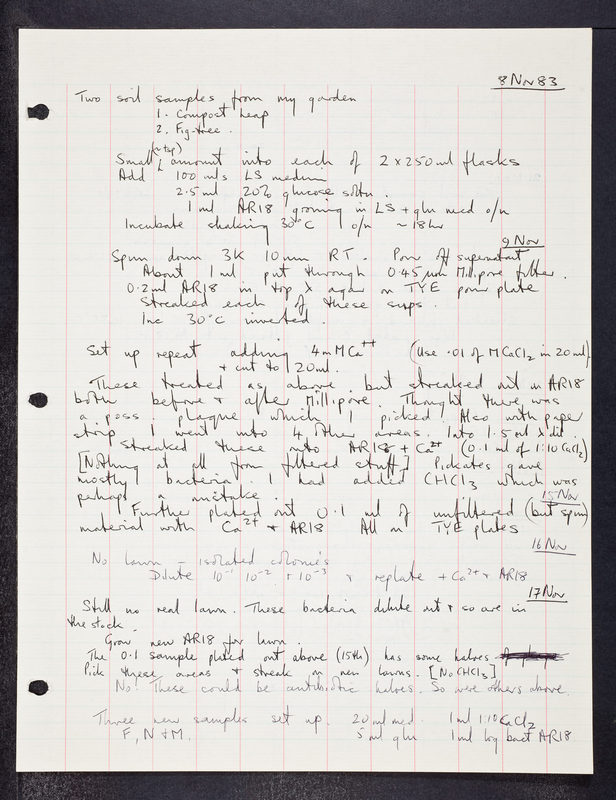 8 Nov 83
Two soil samples from my garden
1. Compost heap
2. Fig-tree.
(½ tsp)
Small amount into each of 2 x 250 ml flasks
Add 100 mls LS medium
2.5 ml 20% glucose soltn.
1 ml AR18 growing in LS + glu med o/n
Incubate shaking 30°C o/n ~ 18 hr
9 Nov
Spun down 3K 10 min RT. Pour off supernatant
About 1 ml put through 0.45 µm Millipore filter.
0.2 ml AR18 in top λ agar on TYE pour plate
Streaked each of these sups.
Inc 30°C inverted.
Set up repeat adding 4 mM Ca++ (Use .01 of M CaCl2 in 20 ml)
+ cut to 20 ml.
These treated as above but streaked out on AR18
both before + after Millipore. Thought there was
a poss plaque which I picked. Also with paper
strip I went into 4 other areas. Into 1.5 ml λ dil.
Streaked these into AR18 + Ca2+ (0.1 ml of 1:10 CaCl2)
[Nothing at all from filtered stuff.] Pickates gave
mostly bacteria. I had added CHCl3 which was
perhaps a mistake.
15 Nov
Further plated out 0.1 ml of unfiltered (but spun)
material with Ca2+ + AR18 All on TYE plates
16 Nov
No lawn – isolated colonies
Dilute 10-1 10-2 + 10-3 + replate + Ca2+ + AR18
17 Nov
Still no real lawn. These bacteria dilute out + so are in
the stock.
Grow new AR18 for lawn.
The 0.1 sample plated out above (15th) has some haloes
Pick these areas + streak on new lawns. [No CHCl3]
No! These could be antibiotic haloes. So were others above.
Three new samples set up. 20 ml med. 1 ml 1:10 CaCl2
F, N + M. 5 ml glu 1 ml log bact AR18